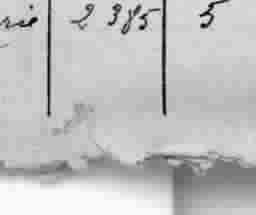 rie 2 385 5